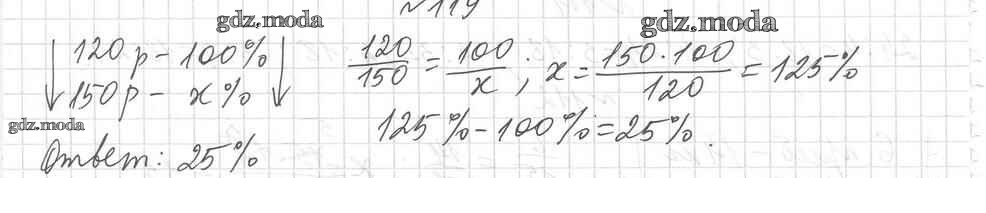 №119
gdz.moda gdz.moda
120 р – 100% 120/150 = 100/x ; x = 150·100/120 = 125%
150 р – x%
gdz.moda 125% – 100% = 25%.
Ответ: 25%